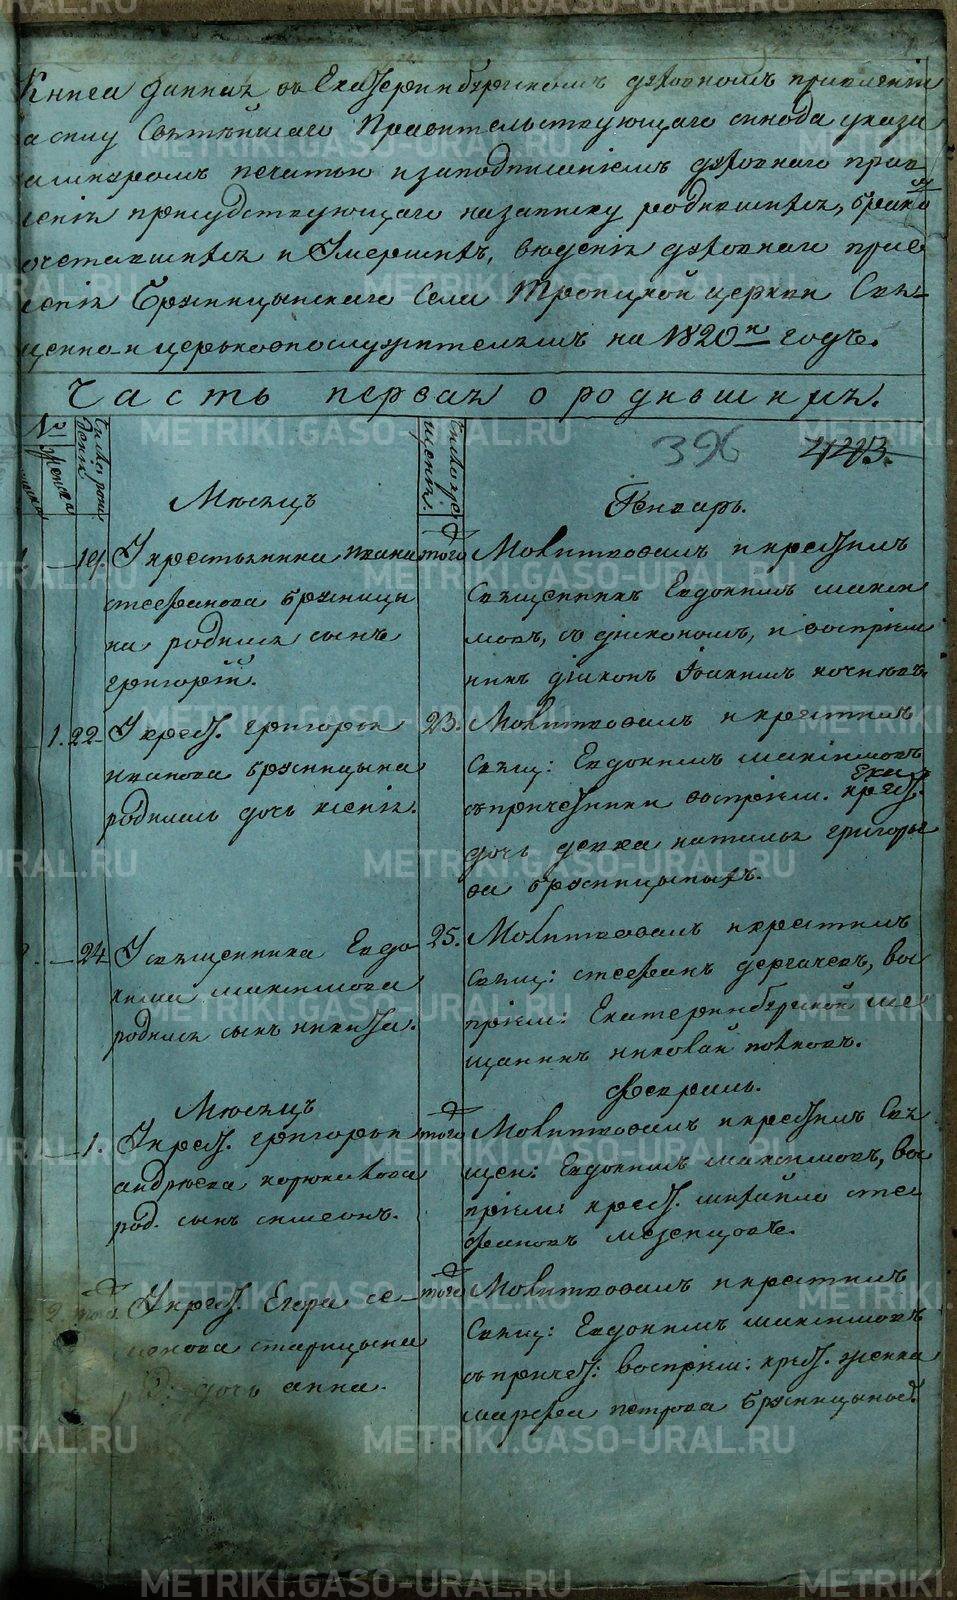 Книга данная въ Екатеринбургскомъ духовномъ правленіи
в силу Святѣйшаго Правительствующаго синода указа
печатью духовнаго прав
ленія присудствующаго на записку родившихся, брако
сочетавшихся и Умершихъ, вѣденія духовнаго прав
ленія Брусницынскаго Села Троицкой церкви Свя-
щенно и церьковнослужителямъ на 1820й годъ.
Часть первая о родившихся.
№
женска
Число рожд
Число кре
щенія
396 4213.
Месяцъ
Генварь.
19.
У крестьянина Ивана
стефанова брусницы
на родился сынъ
григорій.
того
Молитвовалъ и крестилъ
Священникъ Евдокимъ макси
мовъ, со діакономъ, и воспріем
никъ діаконъ Іоакимъ
1. 22
У крест. григорья
иванова брусницына
родилась дочь ксенія.
23.
Молитвовалъ и крестилъ
Свящ: Евдокимъ максимовъ
съ причетники воспріем. крест.
дочь девка наталья григорье
ва брусницыныхъ.
24
У священника Евдо
кима максимова
родился сынъ никита.
25.
Молитвовалъ и крестилъ
Свящ: стефанъ дергачевъ, во
пріем: Екатеринбургской ме
щанинъ николай
Месяцъ
Февраль.
1.
У крест. григорья
андреева корюкалова
род. сынъ симеонъ.
того
Молитвовалъ и крестилъ Свя
щен: Евдокимъ максимовъ, во
пріем: крест. михайло сте
фановъ мезенцовъ.
2 того
У крест. Егора се-
менова старицына
род: дочь анна.
того
Молитвовалъ и крестилъ
Свящ: Евдокимъ максимовъ
съ причет: воспріем: крест. женка
марфа петрова брусницына.
METRIKI.GASO-URAL.RU